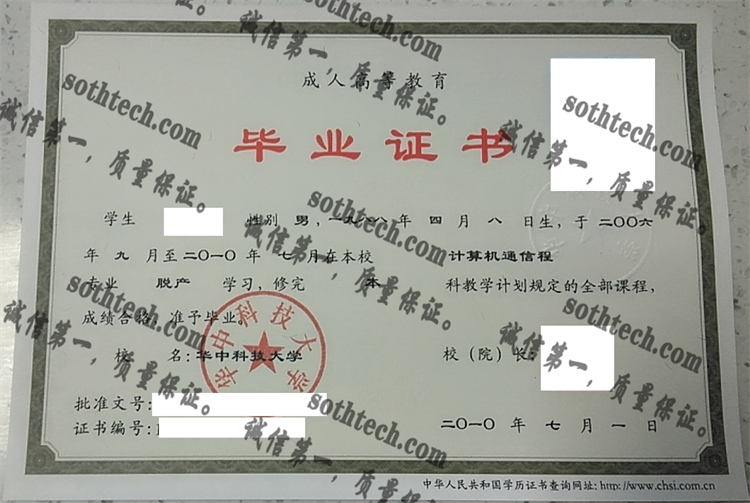 成人高等教育
毕业证书
学生 性别 男，一九八八年 四 月 八 日生，于 二〇〇六
年 九 月至二〇一〇年 七 月在本校 计算机通信程
专业 脱产 学习，修完 本 科教学计划规定的全部课程，
成绩合格，准予毕业。
校 名：华中科技大学 校（院）长：
批准文号：
证书编号：
二〇一〇 年 七 月 一 日
中华人民共和国学历证书查询网址：http://www.chsi.com.cn
华中科技大学
sothtech.com
诚信第一，质量保证。
sothtech.com
诚信第一，质量保证。
sothtech.com
诚信第一，质量保证。
sothtech.com
诚信第一，质量保证。
sothtech.com
诚信第一，质量保证。
sothtech.com
诚信第一，质量保证。
sothtech.com
诚信第一，质量保证。
sothtech.com
诚信第一，质量保证。